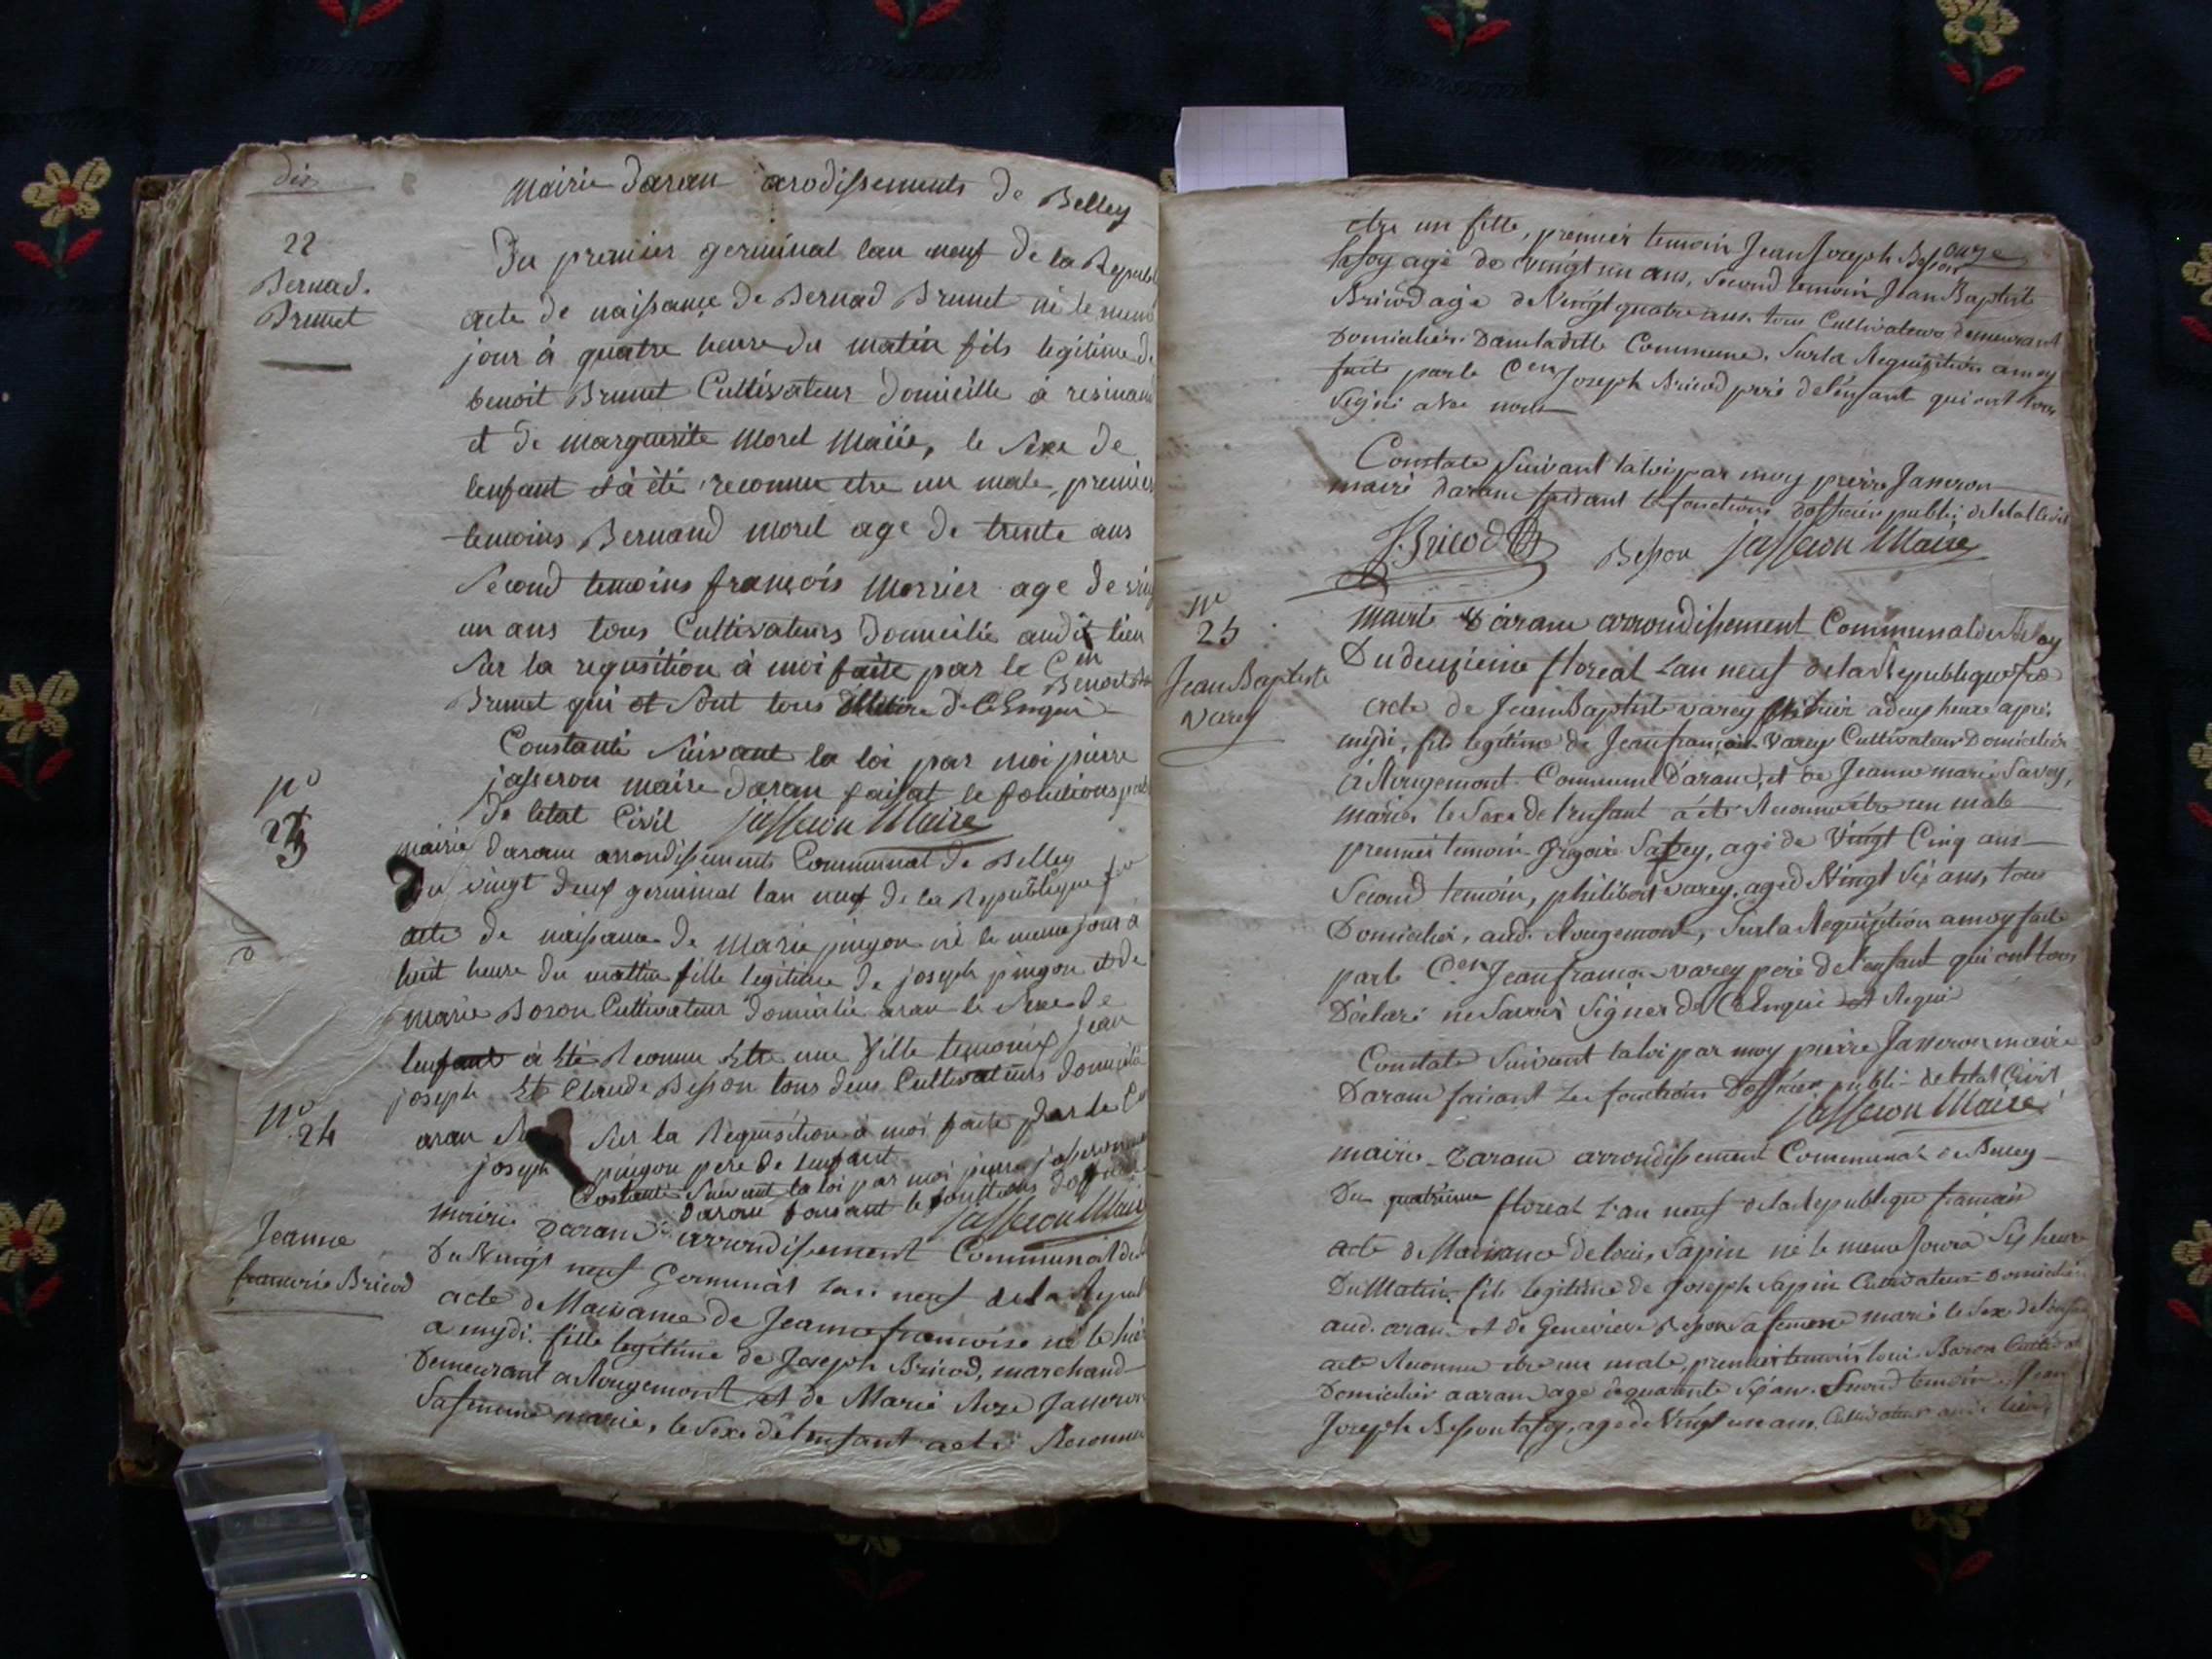 dix
Mairie daran arodissements de Belley
22
Bernad.
Brunet
Du premier germinal lan neuf de la Republ
acte de naissance de Bernad Brunet né le meme
jour à quatre heure du matin fils legitime de
benoit Brunet Cultivateur domicille à resinand
et de marguerite Morel Mariée, le sexe de
lenfant à été reconnu etre un male, premier
temoins Bernand morel age de trente ans
Second temoins françois Morrier age de ving
un ans tous Cultivateurs domicilié audit lieu
Sur la requisition à moi faite par le Cen Benoit
Brunet qui et sont tous illitire de Ce Enquis
Constanté suivant la loi par moi pierre
jasseron maire daran faisat le fonctions
de letat Civil jasseron Maire
no
23
mairie daran arrondissements Communal de Belley
Du vingt deux germinal lan neuf de la Republique
acte de naissance de Marie pingon né le meme jour à
huit heure du mattin fille legitime de joseph pingon et de
Marie Boron Cultivateur domicilié aran le Sexe de
lenfant à Eté Reconnu Etre une fille temoins Jean
joseph Et Claude Besson tous deux Cultivateurs domicilié
aran Sur la Requisition à moi faite par le
joseph pingon pere de lenfant
Costanté Suivant la loi par moi pierre jasseron
daran faisant le fonctions
jasseron Maire
no
24
Jeanne
francoise Bricod
mairie Daran arrondissement Communal de
Du Vingt neuf Germinal Lan neuf de la Republ
acte de Naissance de Jeanne francoise né le
a mydi. fille legitime de Joseph Bricod, marchand
Demeurant a Rougemont et de Marie Roze Jasseron
Sa femme marié, le Sexe de lenfant a eté Reconnu
etre un fille, premier temoin Jean Joseph Besson
Lafoy agé de vingt un ans, Second temoin Jean Baptiste
Bricod agé de Vingt quatre ans tous Cultivateurs demeurant
Domicilier Dans ladite Commune, Sur la Requisition a moy
faite par le Cen Joseph Bricod pere de lenfant qui ont tous
Signé avec nous
Constate Suivant la loi par moy pierre Jasseron
maire daran faisant les fonctions dofficier public de letat Civil
J. Bricod Besson jasseron Maire
no
25
Jean Baptiste
varey
mairie Daran arrondissement Communal de Belley
Du deuxieme floreal Lan neuf de la Republique
acte de Jean Baptiste varey né hier a deux heure apres
mydi, fils legitime de Jean francois Varey Cultivateur Domicilier
a Rougemont Commune Daran, et de Jeanne marie Savey,
mariés le Sexe de lenfant a eté Reconnu etre un male
premier temoin Gregoire Savey, agé de Vingt Cinq ans
Second temoin, philibert varey, agé de Vingt Six ans, tous
Domicilier, aud. Rougemont, Sur la Requisition a moy faite
par le Cen Jean francois varey pere de lenfant qui ont tous
Déclaré ne Savoir Signer de Ce Enquis et Requis
Constate Suivant la loi par moy pierre Jasseron maire
Daran faisant Les fonctions Dofficier public de letat Civil
jasseron Maire
mairie Daran arrondissement Communal de Belley
Du quatrieme floreal Lan neuf de la Republique francais
acte de Naissance de louis Sapin né le meme Jour a Six heure
Du Matin, fils legitime de Joseph Sapin Cultivateur Domicilier
aud. aran et de Genevieve Besson Sa femme marié le Sexe de lenfant
a eté Reconnu etre un male, premier temoin louis Baron Cultivat
Domicilier a aran age de quarante Six ans. Second temoin Jean
Joseph Besson lafoy, age de Vingt un ans. Cultivateur aud. lieu,